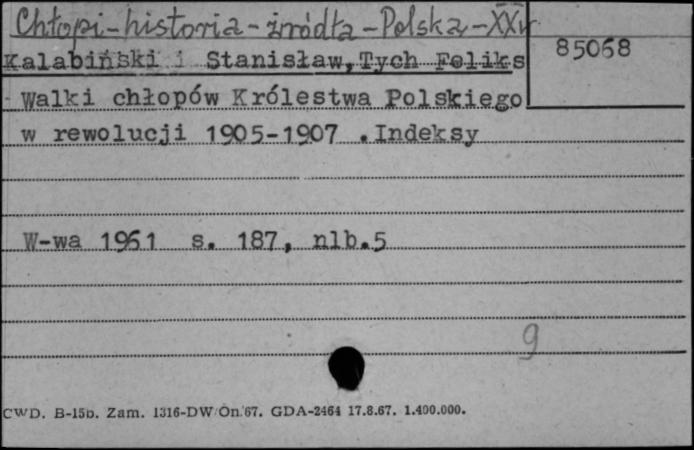 Chłopi-historia-źródła-Polska-XXw
85068
Kalabiński i Stanisław, Tych Feliks
Walki chłopów Królestwa Polskiego
w rewolucji 1905-1907 .Indeksy
W-wa 1961 s. 187, nlb.5
9
CWD. B-15b. Zam. 1316-DW/On.'67. GDA-2464 17.8.67. 1.400.000.